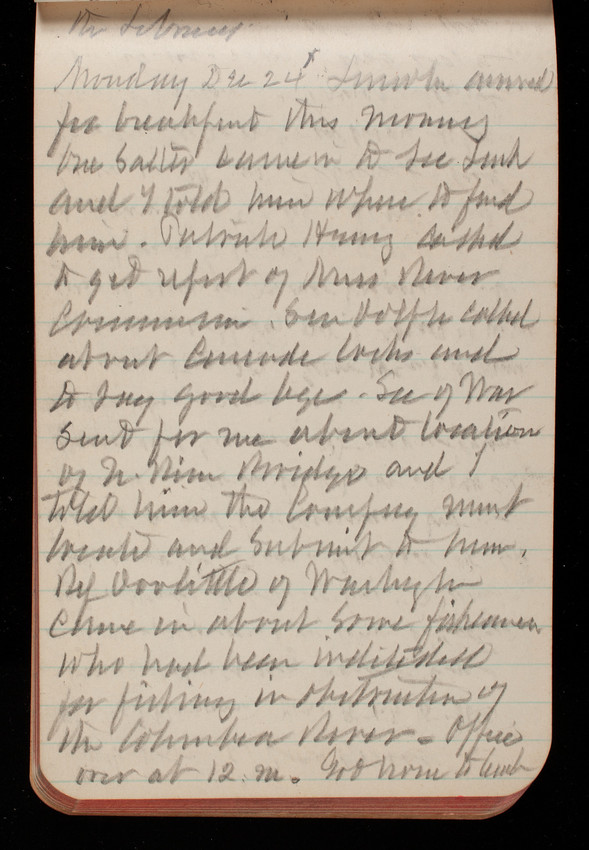 the
Monday Dec 24th Lincoln arrived
for breakfast this morning
One Salter came in to see Linc
and I told him where to find
him. Patrick Henry called
to get report of Miss River
Commission. Sen Dolph called
about Cascade locks and
to say good bye. Sec of War
sent for me about location
of N. River Bridge and I
told him the Company must
locate and submit to him.
Rep Doolittle of Washington
came in about some fishermen
who had been indicted
for fishing in obstruction of
the Columbia River - Office
over at 12. m. Got home to lunch